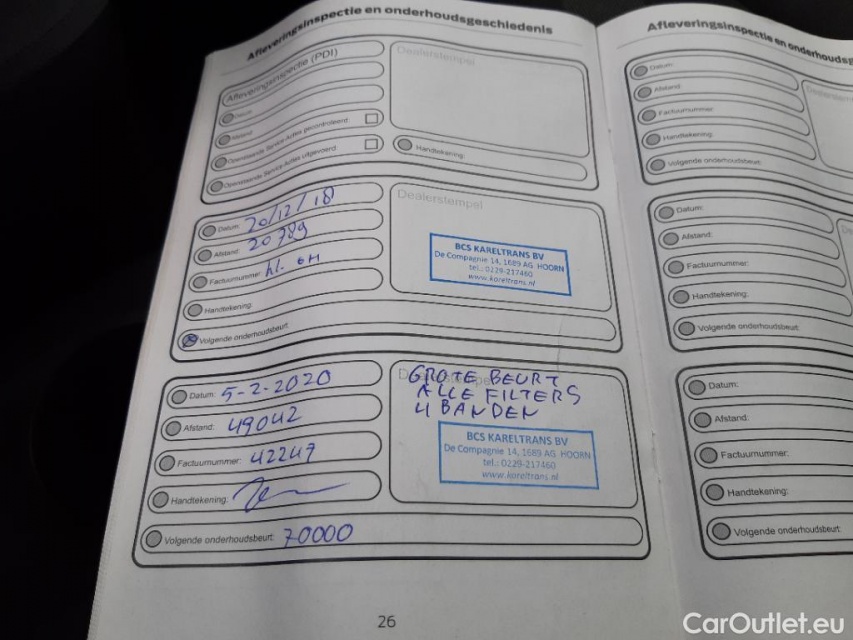 Afleveringsinspectie en onderhoudsgeschiedenis
Afleveringsinspectie (PDI)
Datum:
Afstand:
Openstaande Service-Acties gecontroleerd:
Openstaande Service-Acties uitgevoerd:
Dealerstempel
Handtekening:
Datum: 20/12/18
Afstand: 20789
Factuurnummer:
Handtekening:
Volgende onderhoudsbeurt:
Dealerstempel
BCS KARELTRANS BV
De Compagnie 14, 1689 AG HOORN
tel.: 0229-217460
www.kareltrans.nl
Datum: 5-2-2020
Afstand: 49042
Factuurnummer: 42247
Handtekening:
Volgende onderhoudsbeurt: 70000
GROTE BEURT
ALLE FILTERS
4 BANDEN
BCS KARELTRANS BV
De Compagnie 14, 1689 AG HOORN
tel.: 0229-217460
www.kareltrans.nl
26
Afleveringsinspectie en onderhoudsg
Datum:
Afstand:
Factuurnummer:
Handtekening:
Volgende onderhoudsbeurt:
Datum:
Afstand:
Factuurnummer:
Handtekening:
Volgende onderhoudsbeurt:
Datum:
Afstand:
Factuurnummer:
Handtekening:
Volgende onderhoudsbeurt:
CarOutlet.eu